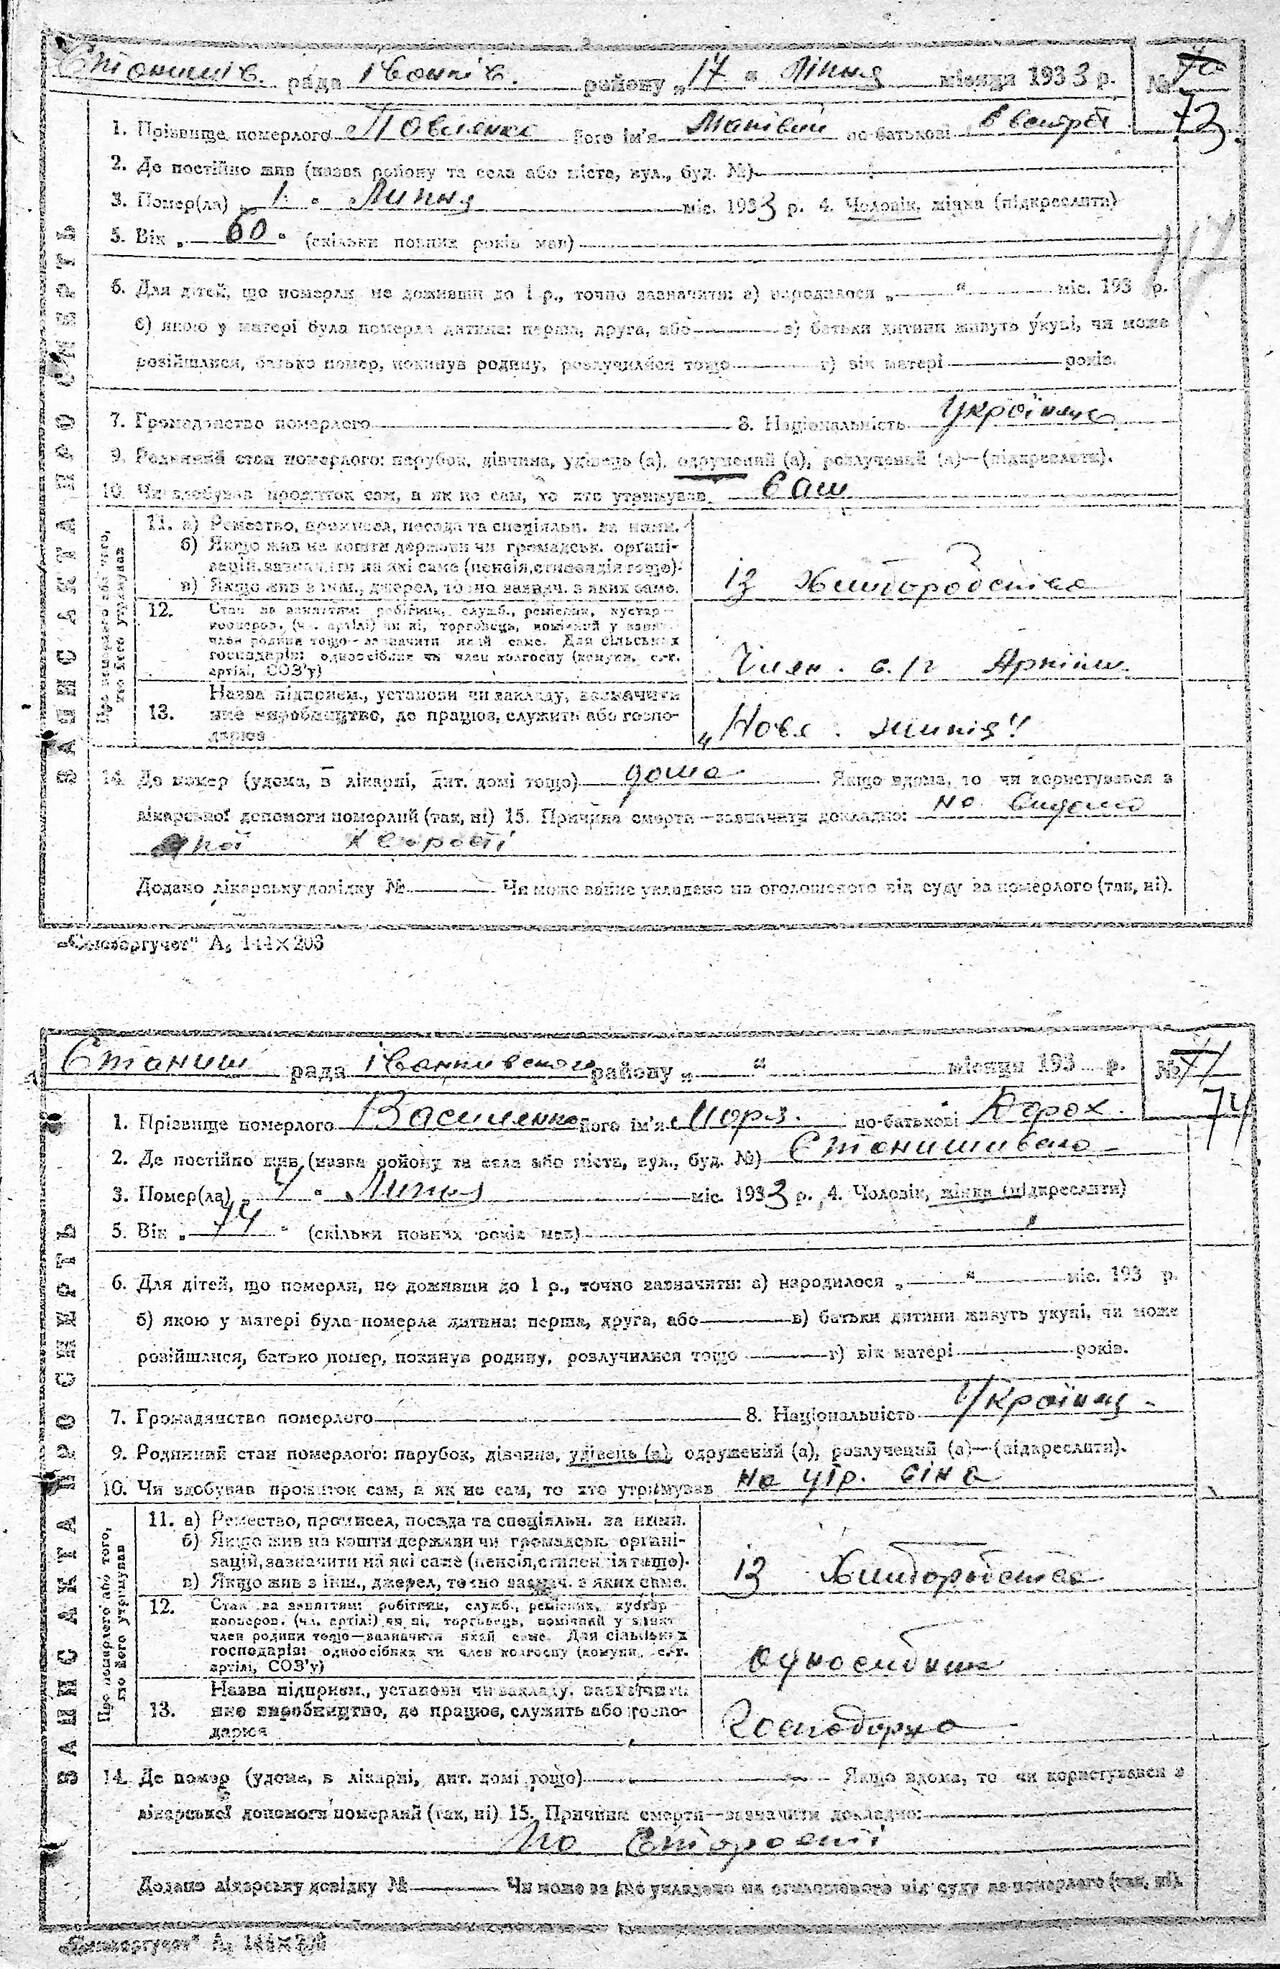 Станишів. рада Іванків. району „17“ Липня місяця 1933 р. №
73
1. Прізвище померлого його ім'я по-батькові
2. Де постійно жив (назва району та села або міста, вул., буд. №)
3. Помер(ла) „1“ Липня міс. 1933 р. 4. Чоловік, жінка (підкреслити)
5. Вік „60“ (скільки повних років мав)
117
6. Для дітей, що померли, не доживши до 1 р., точно зазначити: а) народилося „ “ міс. 193 р.
б) якою у матері була померла дитина: перша, друга, або в) батьки дитини живуть укупі, чи може
розійшлися, батько помер, покинув родину, розлучилися тощо г) вік матері років.
7. Громадянство померлого 8. Національність Українец
9. Родинний стан померлого: парубок, дівчина, удівець (а), одружений (а), розлучений (а)—(підкреслити).
10. Чи здобував прожиток сам, а як не сам, то хто утримував Сам
ЗАПИС АКТА ПРО СМЕРТЬ
Про померлого або того, хто його утримував
11. а) Ремество, промисел, посада та спеціяльн. за ними.
б) Якщо жив на кошти держави чи громадськ. органі-
зацій, зазначити на які саме (пенсія, стипендія тощо).
в) Якщо жив з інш. джерел, точно зазнач. з яких саме.
із Хліборобства
12. Стан за заняттям: робітник, служб., ремісник, кустар
кооперов. (чл. артілі) чи ні, торговець, помічний у занят.
член родини тощо—зазначити який саме. Для сільських
господарів: одноосібник чи член колгоспу (комуни, с.-г.
артілі, СОЗ'у)
Член с/г Артіли
13. Назва підприєм., установи чи закладу, зазначити
яке виробництво, де працює, служить або госпо-
дарює
„Нове життя“
14. Де помер (удома, в лікарні, дит. домі тощо) дома Якщо вдома, то чи користувався з
лікарської допомоги померлий (так, ні) 15. Причина смерти—зазначити докладно: не видомо
якої хворості
Додано лікарську довідку № Чи може запис укладено на оголошеного від суду за померлого (так, ні).
„Союзоргучет“ А5 144×203
Станиш рада Іванкивського району „ “ місяця 193 р. №
74
1. Прізвище померлого Василенко його ім'я Моря. по-батькові
2. Де постійно жив (назва району та села або міста, вул., буд. №) Станишивсло
3. Помер(ла) „4“ Липня міс. 1933 р. 4. Чоловік, жінка (підкреслити)
5. Вік „74“ (скільки повних років мав)
6. Для дітей, що померли, не доживши до 1 р., точно зазначити: а) народилося „ “ міс. 193 р.
б) якою у матері була померла дитина: перша, друга, або в) батьки дитини живуть укупі, чи може
розійшлися, батько помер, покинув родину, розлучилися тощо г) вік матері років.
7. Громадянство померлого 8. Національність Українец
9. Родинний стан померлого: парубок, дівчина, удівець (а), одружений (а), розлучений (а)—(підкреслити).
10. Чи здобував прожиток сам, а як не сам, то хто утримував на утр. сина
ЗАПИС АКТА ПРО СМЕРТЬ
Про померлого або того, хто його утримував
11. а) Ремество, промисел, посада та спеціяльн. за ними.
б) Якщо жив на кошти держави чи громадськ. органі-
зацій, зазначити на які саме (пенсія, стипендія тощо).
в) Якщо жив з інш. джерел, точно зазнач. з яких саме.
із Хліборобства
12. Стан за заняттям: робітник, служб., ремісник, кустар
кооперов. (чл. артілі) чи ні, торговець, помічний у занят.
член родини тощо—зазначити який саме. Для сільських
господарів: одноосібник чи член колгоспу (комуни, с.-г.
артілі, СОЗ'у)
односибник
13. Назва підприєм., установи чи закладу, зазначити
яке виробництво, де працює, служить або госпо-
дарює
14. Де помер (удома, в лікарні, дит. домі тощо) Якщо вдома, то чи користувався з
лікарської допомоги померлий (так, ні) 15. Причина смерти—зазначити докладно:
По Старости
Додано лікарську довідку № Чи може запис укладено на оголошеного від суду за померлого (так, ні).
„Союзоргучет“ А5 144×203